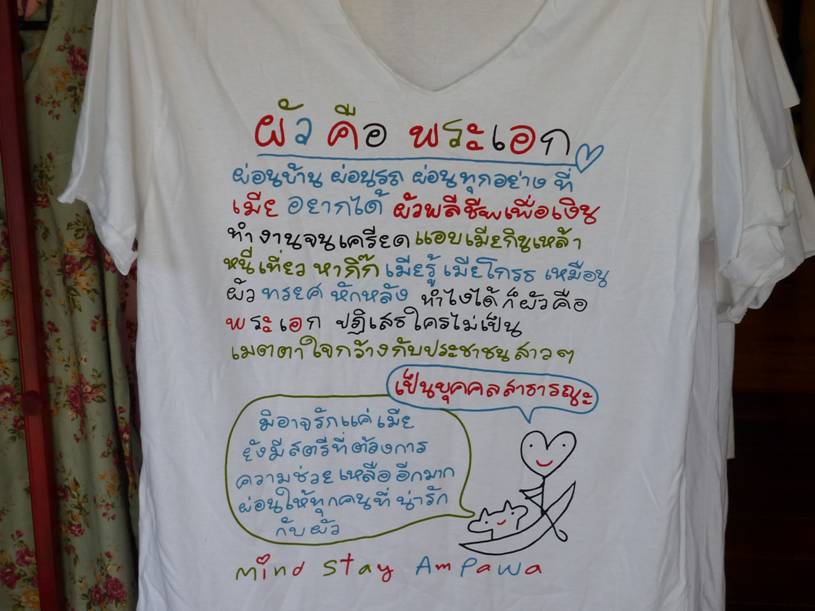 ผัว คือ พระเอก
ผ่อนบ้าน ผ่อนรถ ผ่อนทุกอย่าง ที่
เมีย อยากได้ ผัวพลีชีพเพื่อเงิน
ทำงานจนเครียด แอบเมียกินเหล้า
หนี่เที่ยว หากิ๊ก เมียรู้ เมียโกรธ เหมือน
ผัว ทรยศ หักหลัง ทำไงได้ ก็ผัวคือ
พระเอก ปฏิเสธใครไม่เป็น
เมตตาใจกว้างกับประชาชนสาวๆ
เป็นบุคคลสาธารณะ
มิอาจรักแค่เมีย
ยังมีสตรีที่ต้องการ
ความช่วยเหลืออีกมาก
ผ่อนให้ทุกคนที่น่ารัก
กับผัว
Mind Stay AmPawa